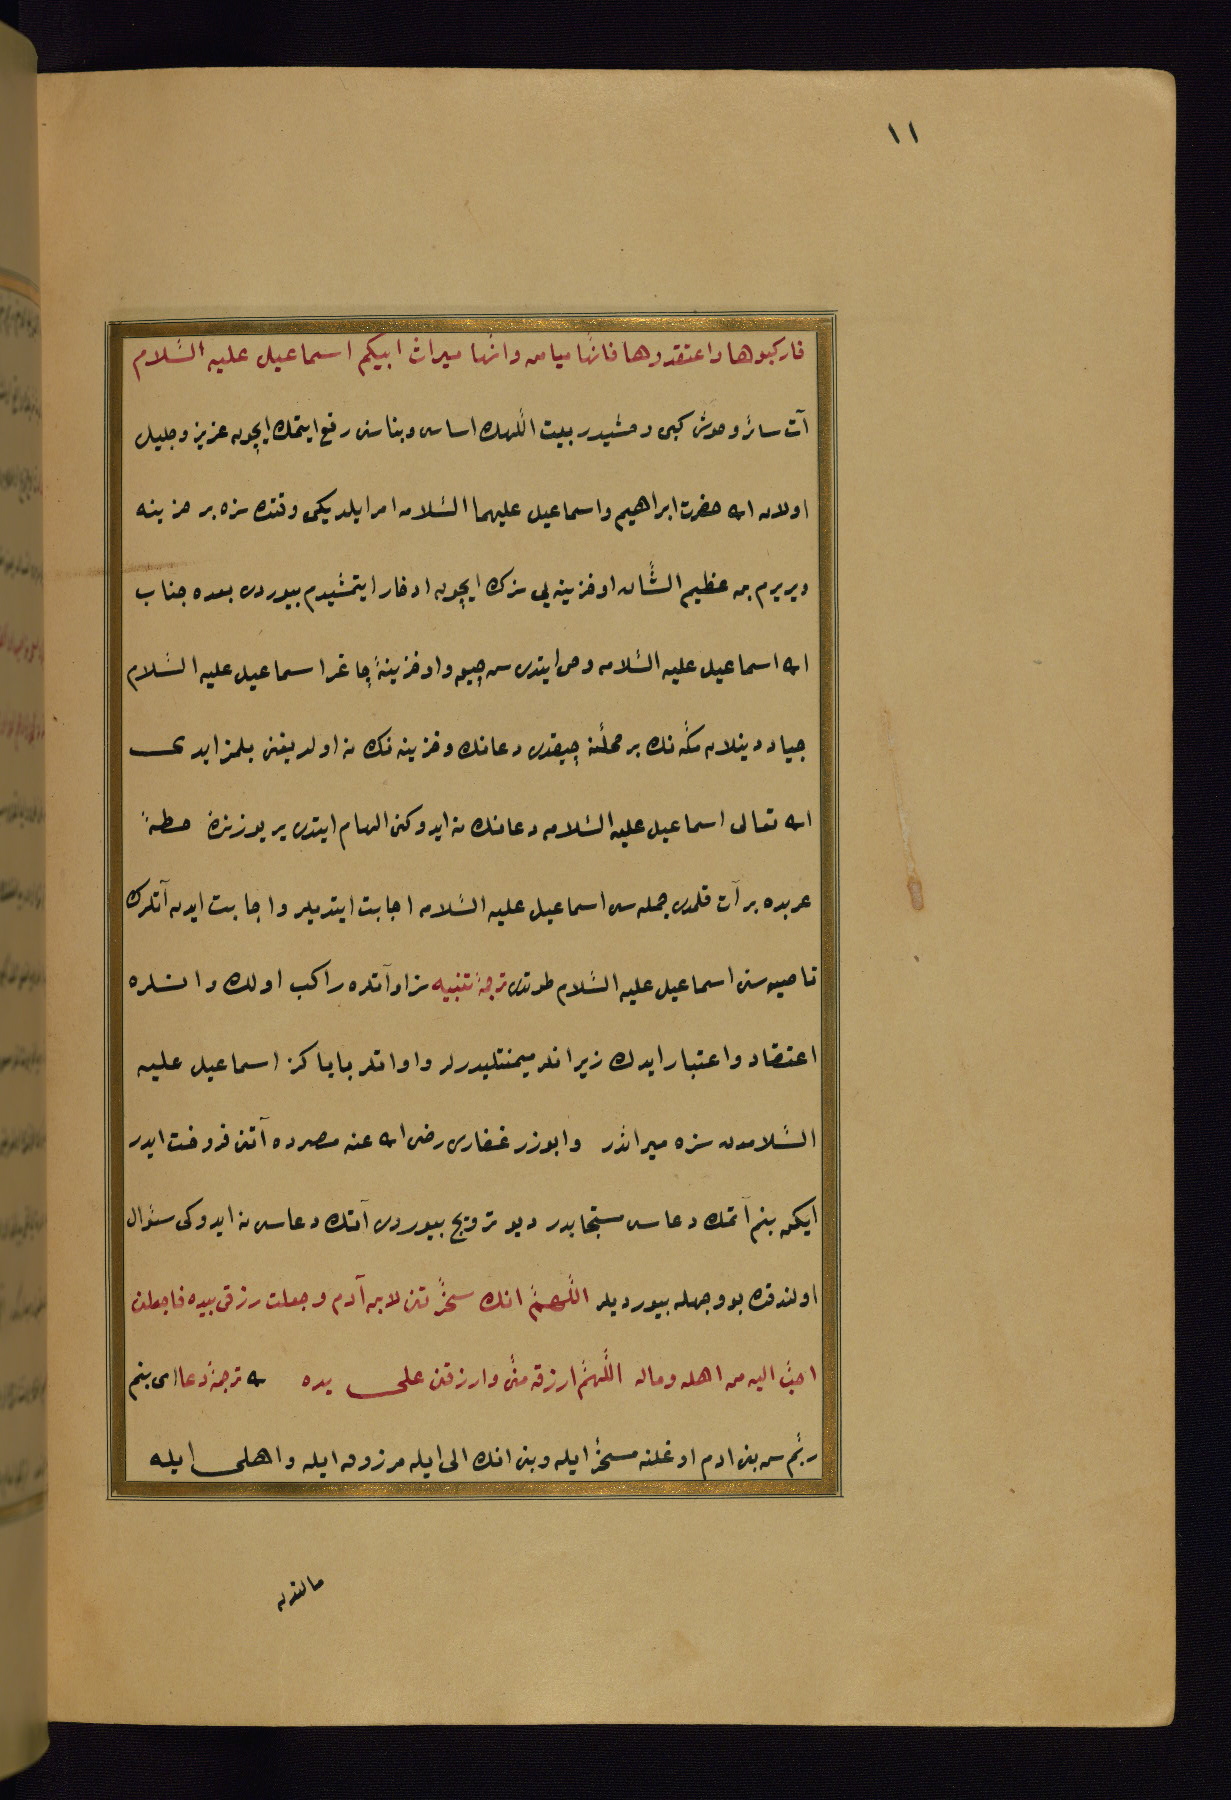 ١١
فاركبوها واعتقدوها فانها ميامن وانها ميراث ابيكم اسماعيل عليه السّلام
آت سائر وحوش كبى وحشيدر بيت اللّهك اساس وبناسنى رفع ايتمك ايچون عزيز وجليل
اولان الله حضرت ابراهيم واسماعيل عليهما السّلامه امر ايلديكى وقتده سزه بر خزينه
ويريرم بن عظيم الشّان او خزينه يى سزك ايچون ادخار ايتمشيدم بيوردى بعده جناب
الله اسماعيل عليه السّلامه وحى ايتدى سن چيق واو خزينهٔ چاغر اسماعيل عليه السّلام
جياد دينلان مكّه نك بر محلّنه چيقدى دعانك وخزينه نك نه اولديغنى بلمز ايدى
الله تعالى اسماعيل عليه السّلامه دعانك نه ايدوكن الهام ايتدى ير يوزنده خطهٔ
عربده بر آت قلمدى جمله سى اسماعيل عليه السّلامه اجابت ايتديلر واجابت ايدن آتلرك
ناصيه سنى اسماعيل عليه السّلام طوتدى ترجمهٔ تنبيه سز او آتلره راكب اولك وانلره
اعتقاد واعتبار ايدك زيرا انلر ميمنتليدرلر واو اتلر باباكز اسماعيل عليه
السّلامدن سزه ميراثدر وابوزر غفارى رضى الله عنه مصرده آتنى فروخت ايدر
ايكن بنم آتمك دعاسى مستجابدر ديو ترويج بيوردى آتك دعاسى نه ايدوكى سئوال
اولندقده بو وجهله بيورديلر اللّهمّ انك سخّرتنى لابن آدم وجعلت رزقى بيده فاجعلنى
احبّ اليه من اهله وماله اللّهمّ ارزقه منّى وارزقنى على يده ترجمهٔ دعا اى بنم
ربّم سن بنى ادم اوغلنه مسخّر ايله وبنى انك الى ايله مرزوق ايله واهلى ايله
مالندن